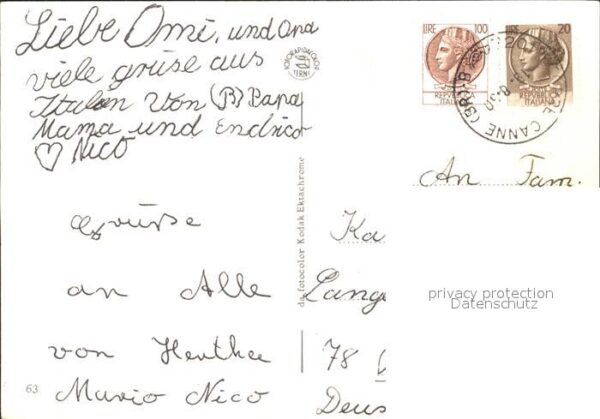 Liebe Omi, und Opa
viele grüse aus
Italien von (B) Papa
Mama und Endrico
♡ Nico
Grüße
an Alle
von Hertha
Mario Nico
63
da fotocolor Kodak Ektachrome
FOTORAPIDACOLOR
TERNI
LIRE 100
REPUBBLICA
ITALIANA
LIRE 20
REPUBBLICA
ITALIANA
CANNE (BR)
An Fam.
Ka
Lange
78
Deus
privacy protection
Datenschutz